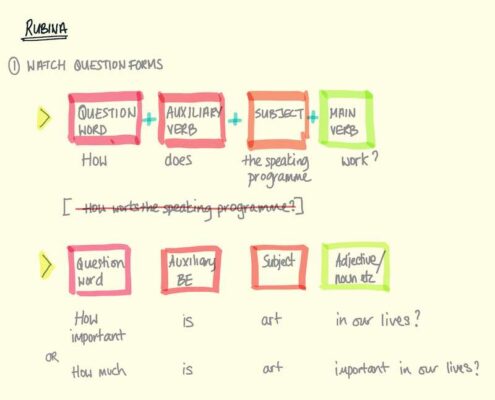 RUBINA
① WATCH QUESTION FORMS
QUESTION WORD + AUXILIARY VERB + SUBJECT + MAIN VERB
How does the speaking programme work?
[ How works the speaking programme? ]
Question word Auxiliary BE Subject Adjective/ noun etc
How important is art in our lives?
OR
How much is art important in our lives?